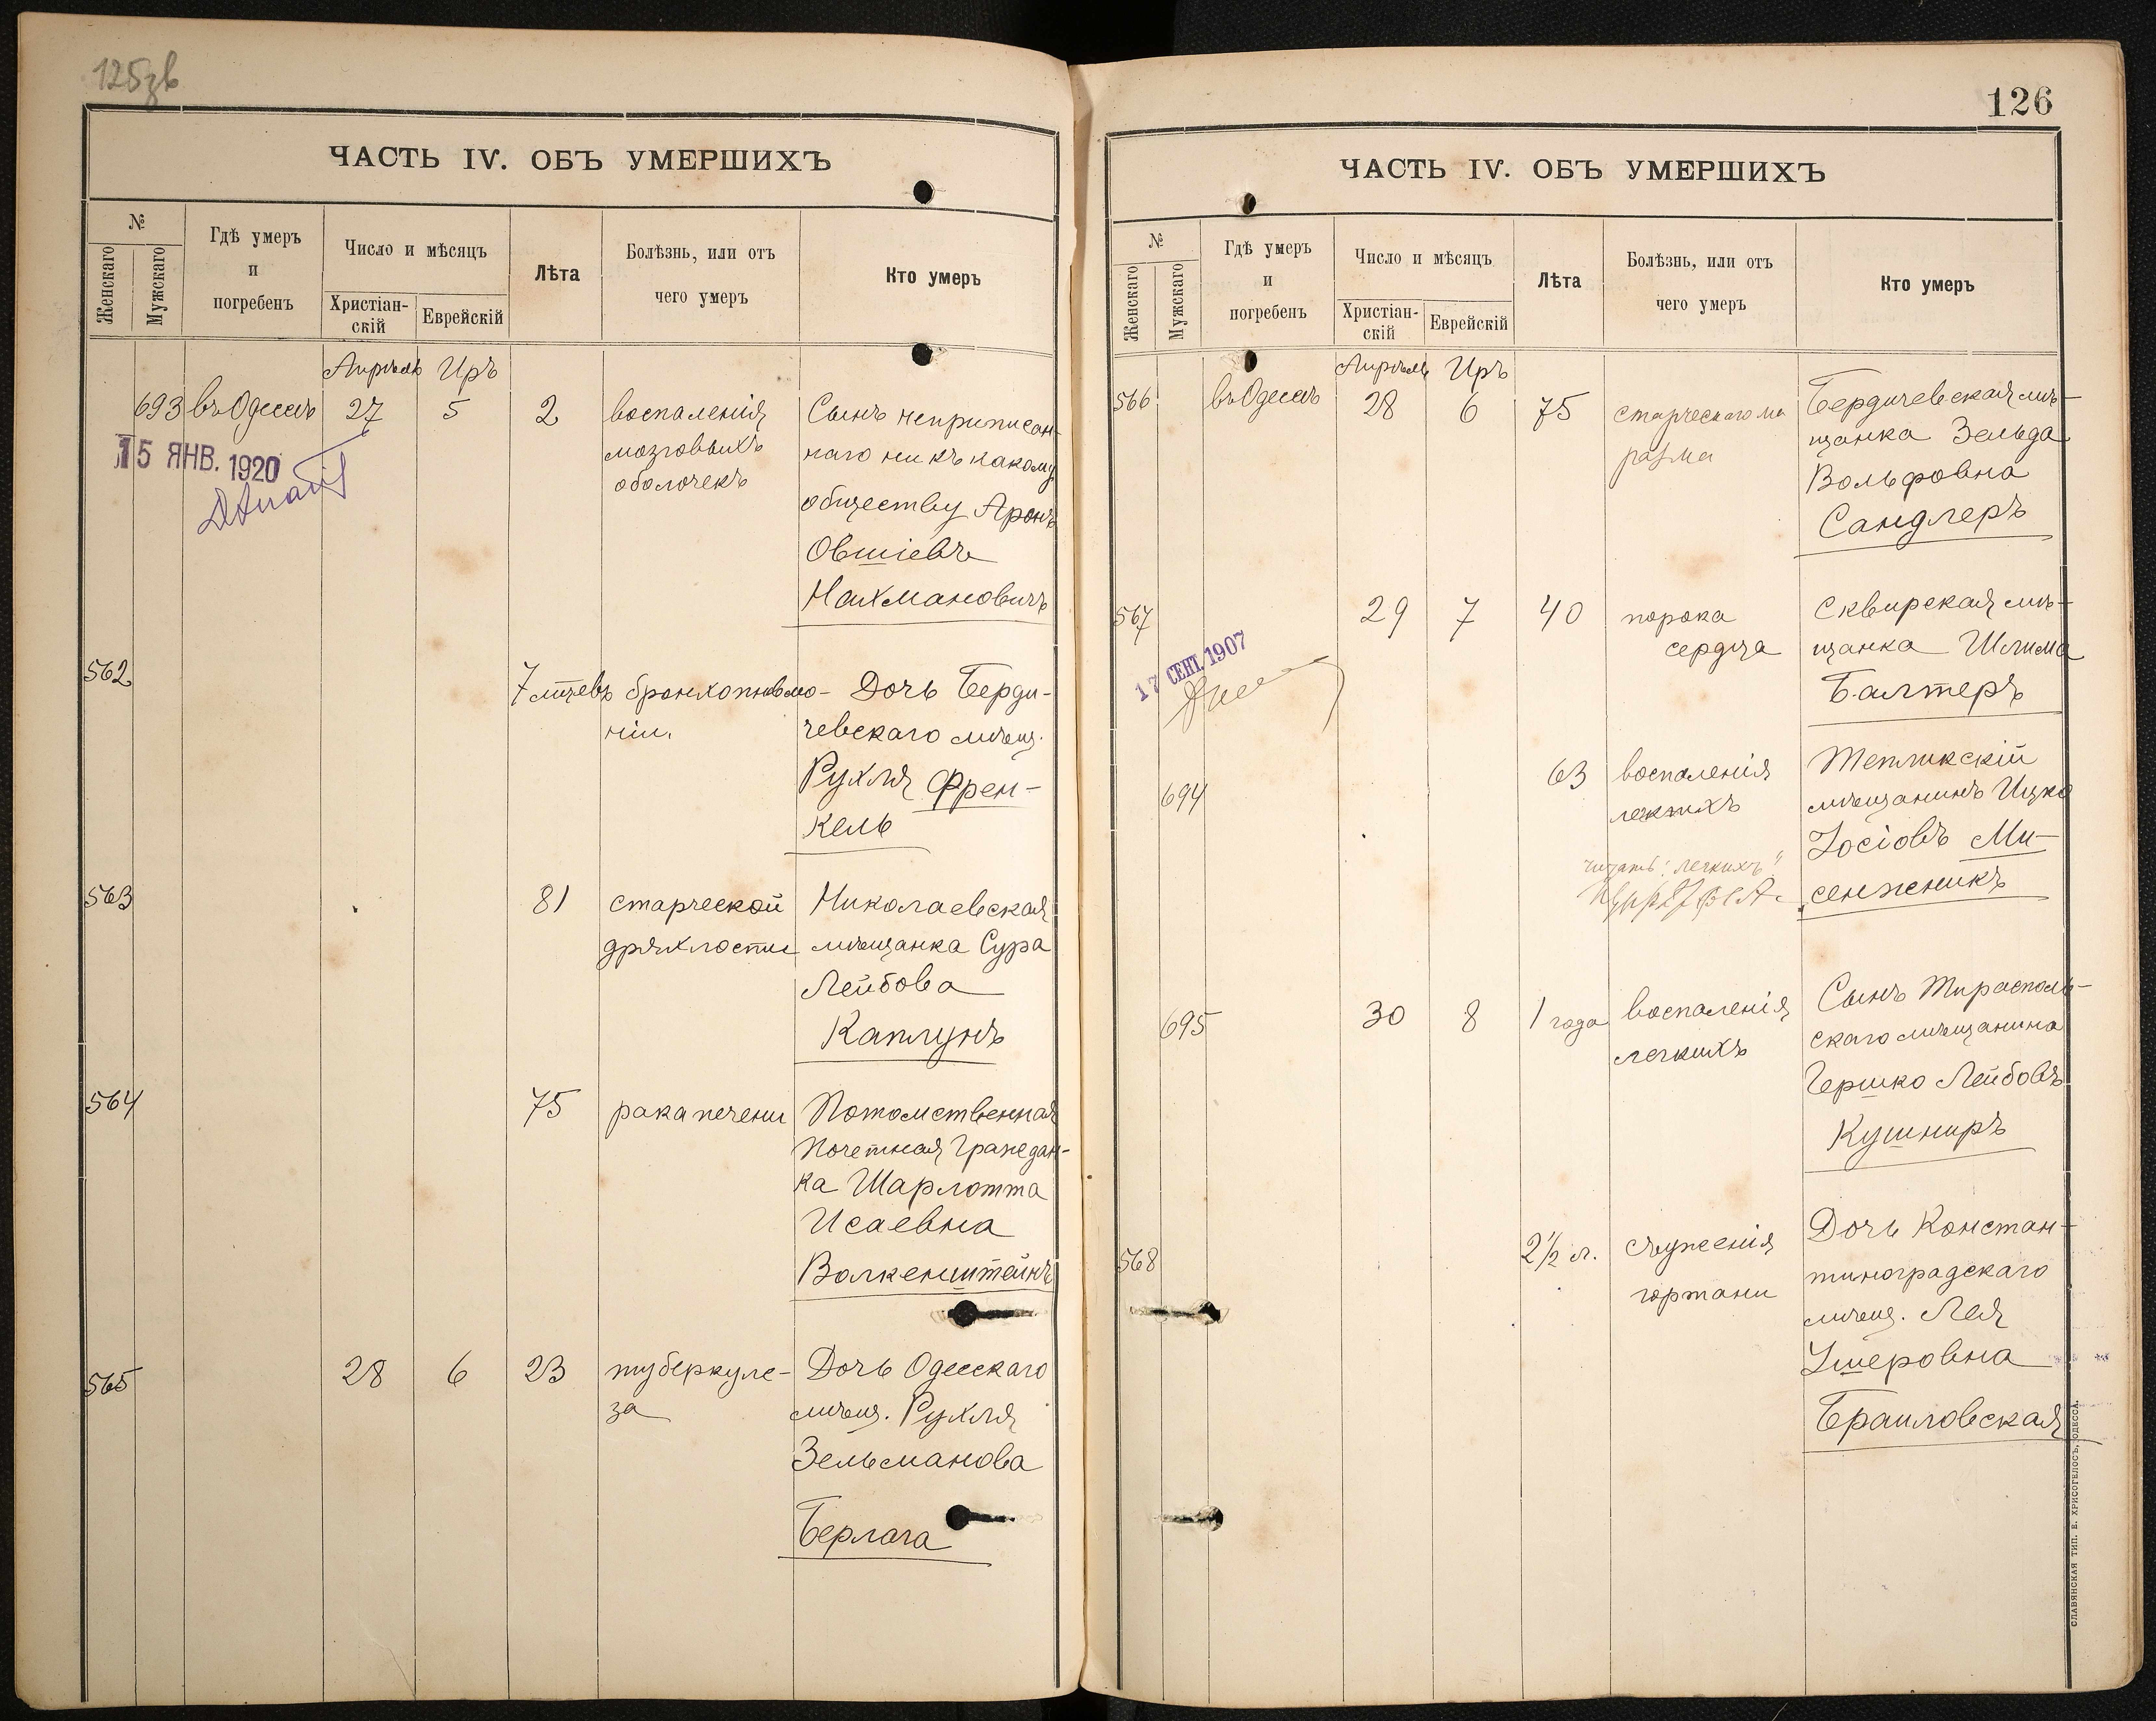 125зв
ЧАСТЬ IV. ОБЪ УМЕРШИХЪ
№
Женскаго
Мужскаго
Гдѣ умеръ
и
погребенъ
Число и мѣсяцъ
Христіан-
скій
Еврейскій
Лѣта
Болѣзнь, или отъ
чего умеръ
Кто умеръ
Апрѣль Иръ
693 въ Одессѣ 27 5 2 воспаленія
мозговыхъ
оболочекъ
Сынъ неприписан-
наго ни къ какому
обществу Аронъ
Овшіевъ
Нахмановичъ
15 ЯНВ. 1920
562 7 мѣсцевъ бронхопневмо-
ніи.
Дочь Берди-
чевскаго мѣщ.
Рухля Френ-
кель
563 81 старческой
дряхлости
Николаевская
мѣщанка Сура
Лейбова
Каплунъ
564 75 рака печени
Потомственная
Почетная Граждан-
ка Шарлотта
Исаевна
Волкенштейнъ
565 28 6 23 туберкуле-
за
Дочь Одесскаго
мѣщ. Рухля
Зельманова
Берлага
126
ЧАСТЬ IV. ОБЪ УМЕРШИХЪ
№
Женскаго
Мужскаго
Гдѣ умеръ
и
погребенъ
Число и мѣсяцъ
Христіан-
скій
Еврейскій
Лѣта
Болѣзнь, или отъ
чего умеръ
Кто умеръ
Апрѣль Иръ
566 въ Одессѣ 28 6 75 старческаго ма
разма
Бердичевская мѣ-
щанка Зельда
Вольфовна
Сандлеръ
567 29 7 40 порока
сердца
Сквирская мѣ-
щанка Шлима
Балтеръ
17 СЕНТ. 1907
694 63 воспаленія
легкихъ
читать: "легкихъ"
Тепликскій
мѣщанинъ Ицко
Іосіовъ Ми-
сенжникъ
695 30 8 1 года воспаленія
легкихъ
Сынъ Тирасполь-
скаго мѣщанина
Гершко Лейбовъ
Кушниръ
568 2½ л. съуженія
гортани
Дочь Констан-
тиноградскаго
мѣщ. Лея
Ушеровна
Браиловская
СЛАВЯНСКАЯ ТИП. Е. ХРИСОГЕЛОСЪ, ОДЕССА.